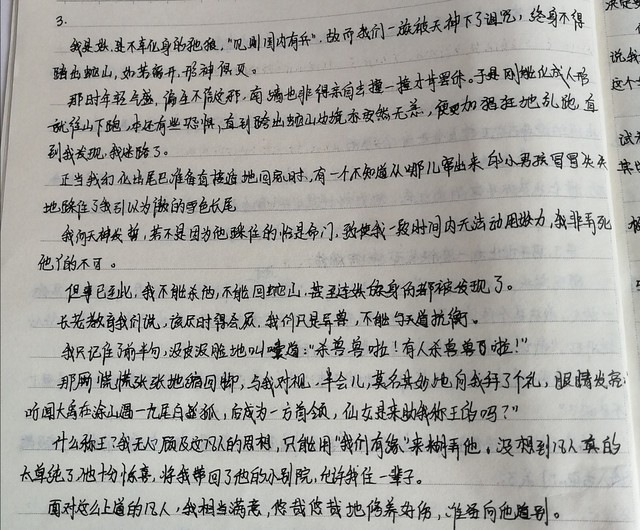 3.
我是犼,是不幸化身的独狼,"见则国内有兵",故而我们一族被天神下了诅咒,终身不得
踏出山,如若离开,形神俱灭。
那时年轻气盛,偏生不信这邪,南墙也非得亲自去撞一撞才肯罢休。于是刚能化成人形
就往山下跑,本还有些恐惧,直到踏出山边境亦安然无恙,便更加猖狂地乱跑,直
到我发现,我迷路了。
正当我幻化出尾巴准备直接遁地回家时,有一个不知道从哪儿窜出来的小男孩冒冒失失
地踩住了我引以为傲的雪色长尾
我向天神发誓,若不是因为他踩住的恰是命门,致使我一段时间内无法动用妖力,我非弄死
他丫的不可。
但事已至此,我不能杀他,不能回山,甚至连妖身都被发现了。
长老教育我们说,该怂时得会怂,我们只是异兽,不能与天道抗衡。
我只记准了前半句,没皮没脸地叫嚷道:"杀兽兽啦!有人杀兽兽了啦!"
那厮慌慌张张地缩回脚,与我对视,半会儿,莫名其妙地向我拜了个礼,眼睛发亮:
听闻大禹在涂山遇一九尾白狐,后成为一方首领,仙女是来助我称王的吗?"
什么称王?我无心顾及这凡人的思想,只能用"我们有缘"来糊弄他。没想到凡人真的
太单纯了,他十分惊喜,将我带回了他的小别院,允许我住一辈子。
面对这么上道的凡人,我相当满意,悠哉悠哉地修养好伤,准备向他道别。
说我
这个
试
其